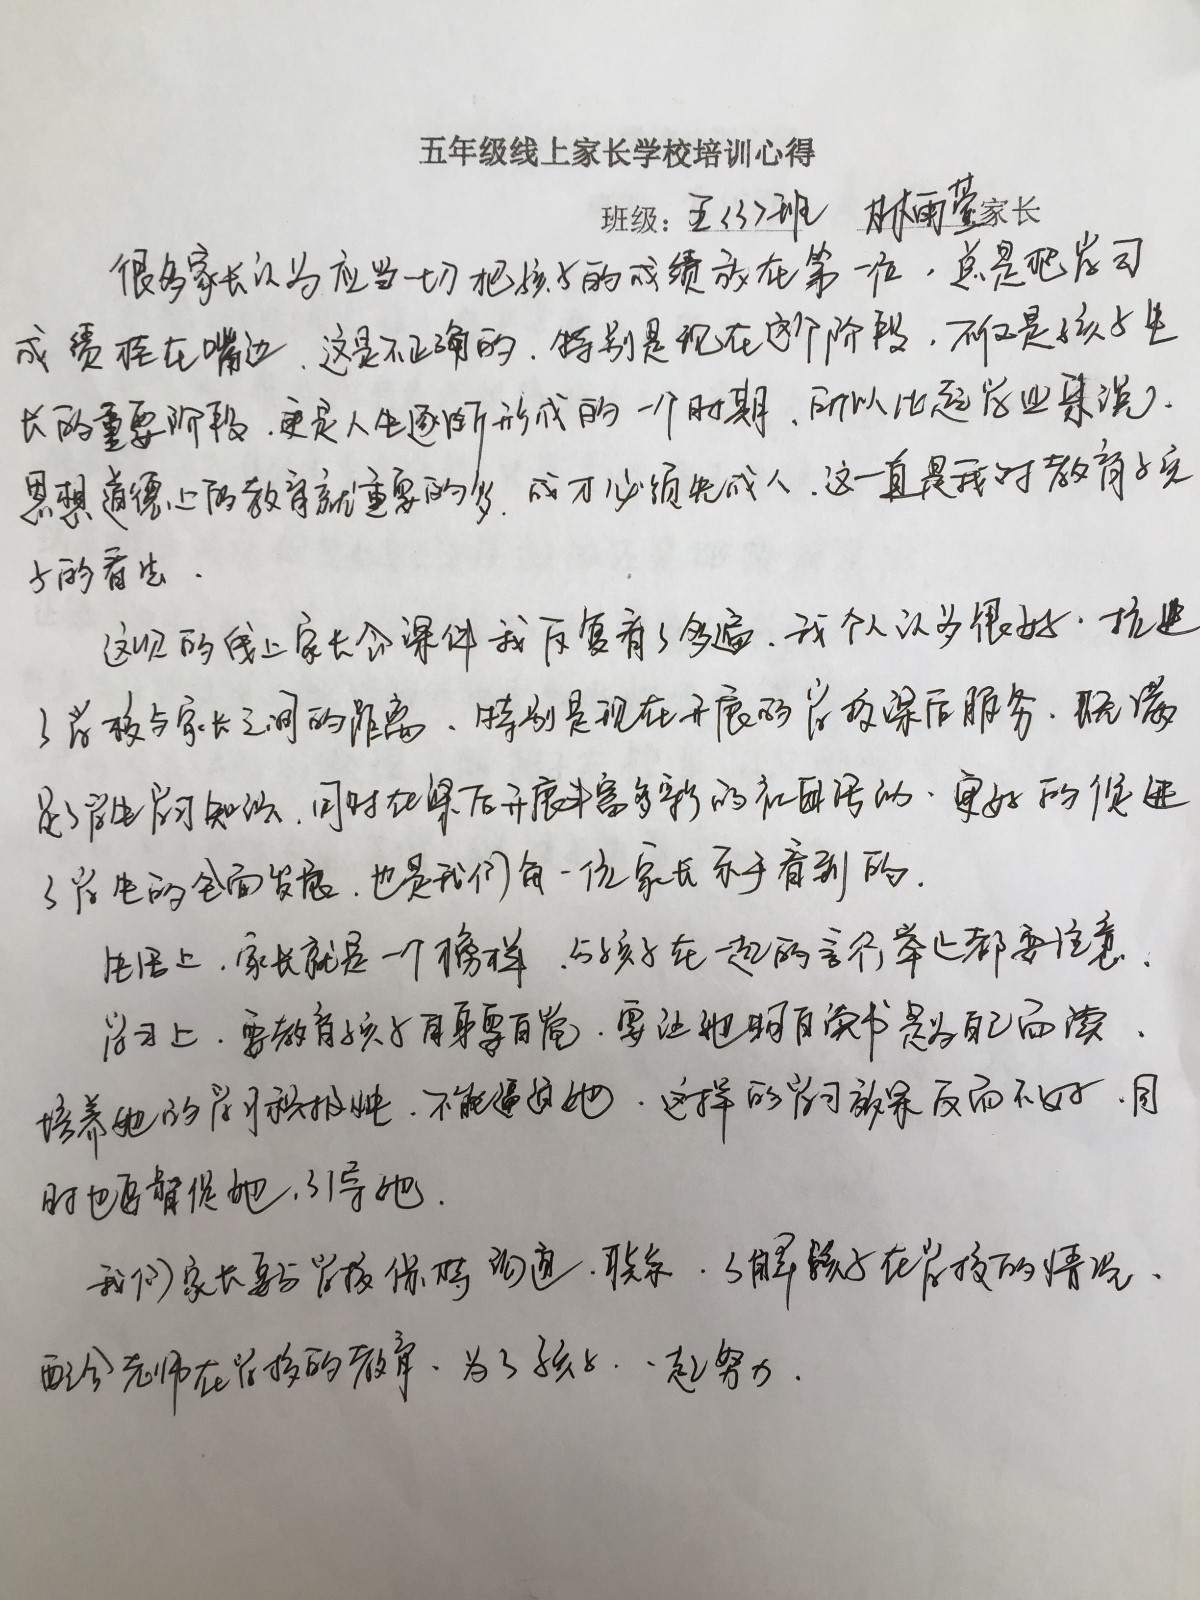 五年级线上家长学校培训心得
班级：五〈3〉班 林雨萱家长
很多家长认为应当一切把孩子的成绩放在第一位，总是把学习
成绩挂在嘴边，这是不正确的，特别是现在这个阶段，不仅是孩子生
长的重要阶段，更是人生逐渐形成的一个时期，所以比起学业来说，
思想道德上的教育就重要的多，成才必须先成人，这一直是我对教育孩
子的看法．
这次的线上家长会课件我反复看了多遍，我个人认为很好．拉近
了学校与家长之间的距离，特别是现在开展的学校课后服务，既满
足了学生学习知识，同时在课后开展丰富多彩的社团活动，更好的促进
了学生的全面发展，也是我们每一位家长乐于看到的．
生活上，家长就是一个榜样，与孩子在一起的言行举止都要注意．
学习上，要教育孩子自身要自觉，要让她明白读书是为自己而读，
培养她的学习积极性，不能逼迫她，这样的学习效果反而不好，同
时也要督促她，引导她．
我们家长要与学校保持沟通，联系，了解孩子在学校的情况，
配合老师在学校的教育，为了孩子，一起努力．